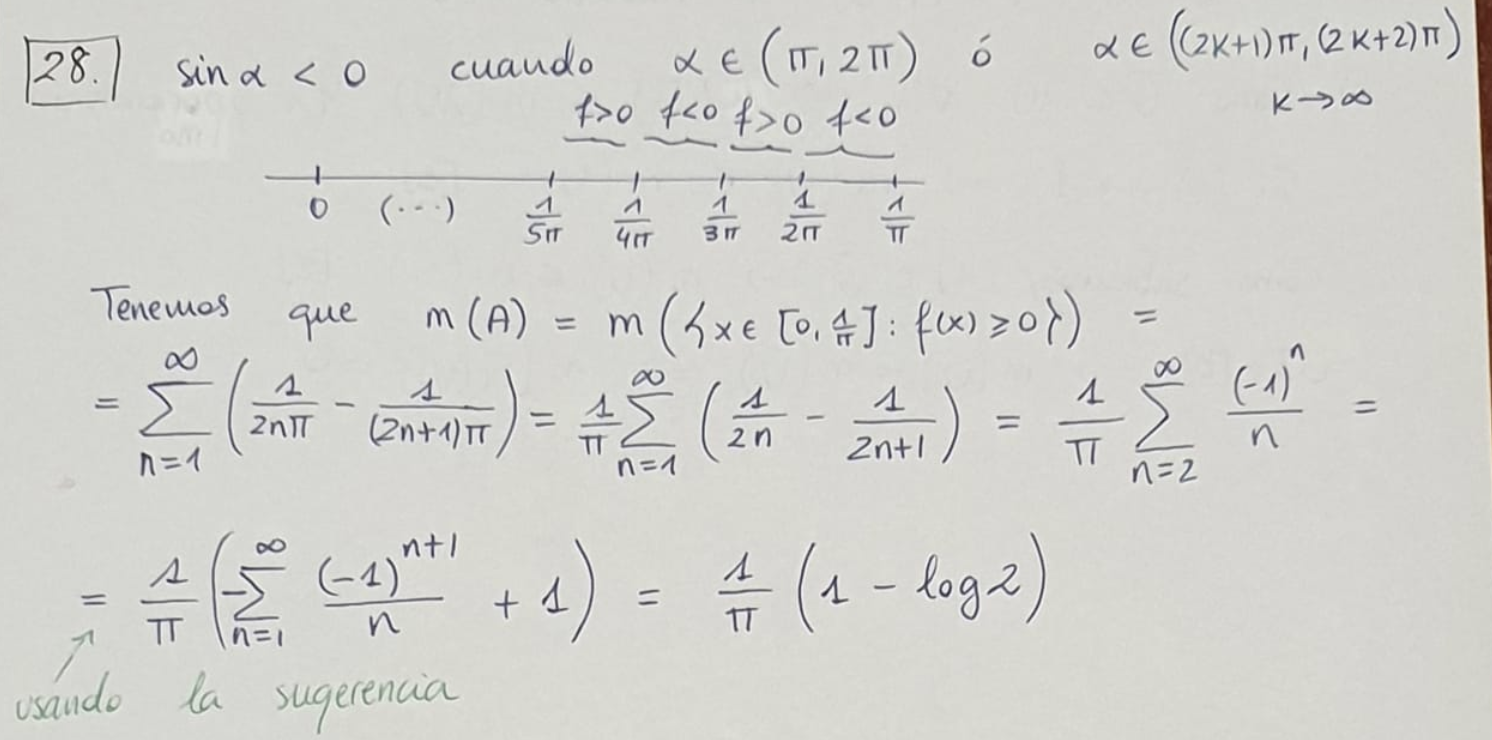 28. sin α < 0 cuando α ∈ (π, 2π) ó α ∈ ((2k+1)π, (2k+2)π)
k → ∞
f>0 f<0 f>0 f<0
0 (...) 1/5π 1/4π 1/3π 1/2π 1/π
Tenemos que m(A) = m({x ∈ [0, 1/π] : f(x) ≥ 0}) =
= ∑_{n=1}^{∞} (1/2nπ - 1/(2n+1)π) = 1/π ∑_{n=1}^{∞} (1/2n - 1/2n+1) = 1/π ∑_{n=2}^{∞} (-1)^n/n =
= 1/π (-∑_{n=1}^{∞} (-1)^{n+1}/n + 1) = 1/π (1 - log2)
usando la sugerencia